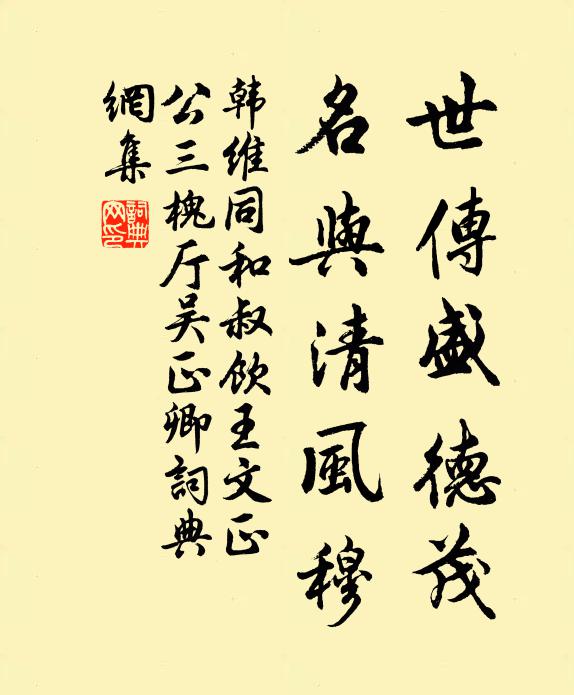 世傳盛德茂
名與清風穆
韩維同和叔飲王文正
公三槐厅吴正卿詞典
網集
詞典
网印